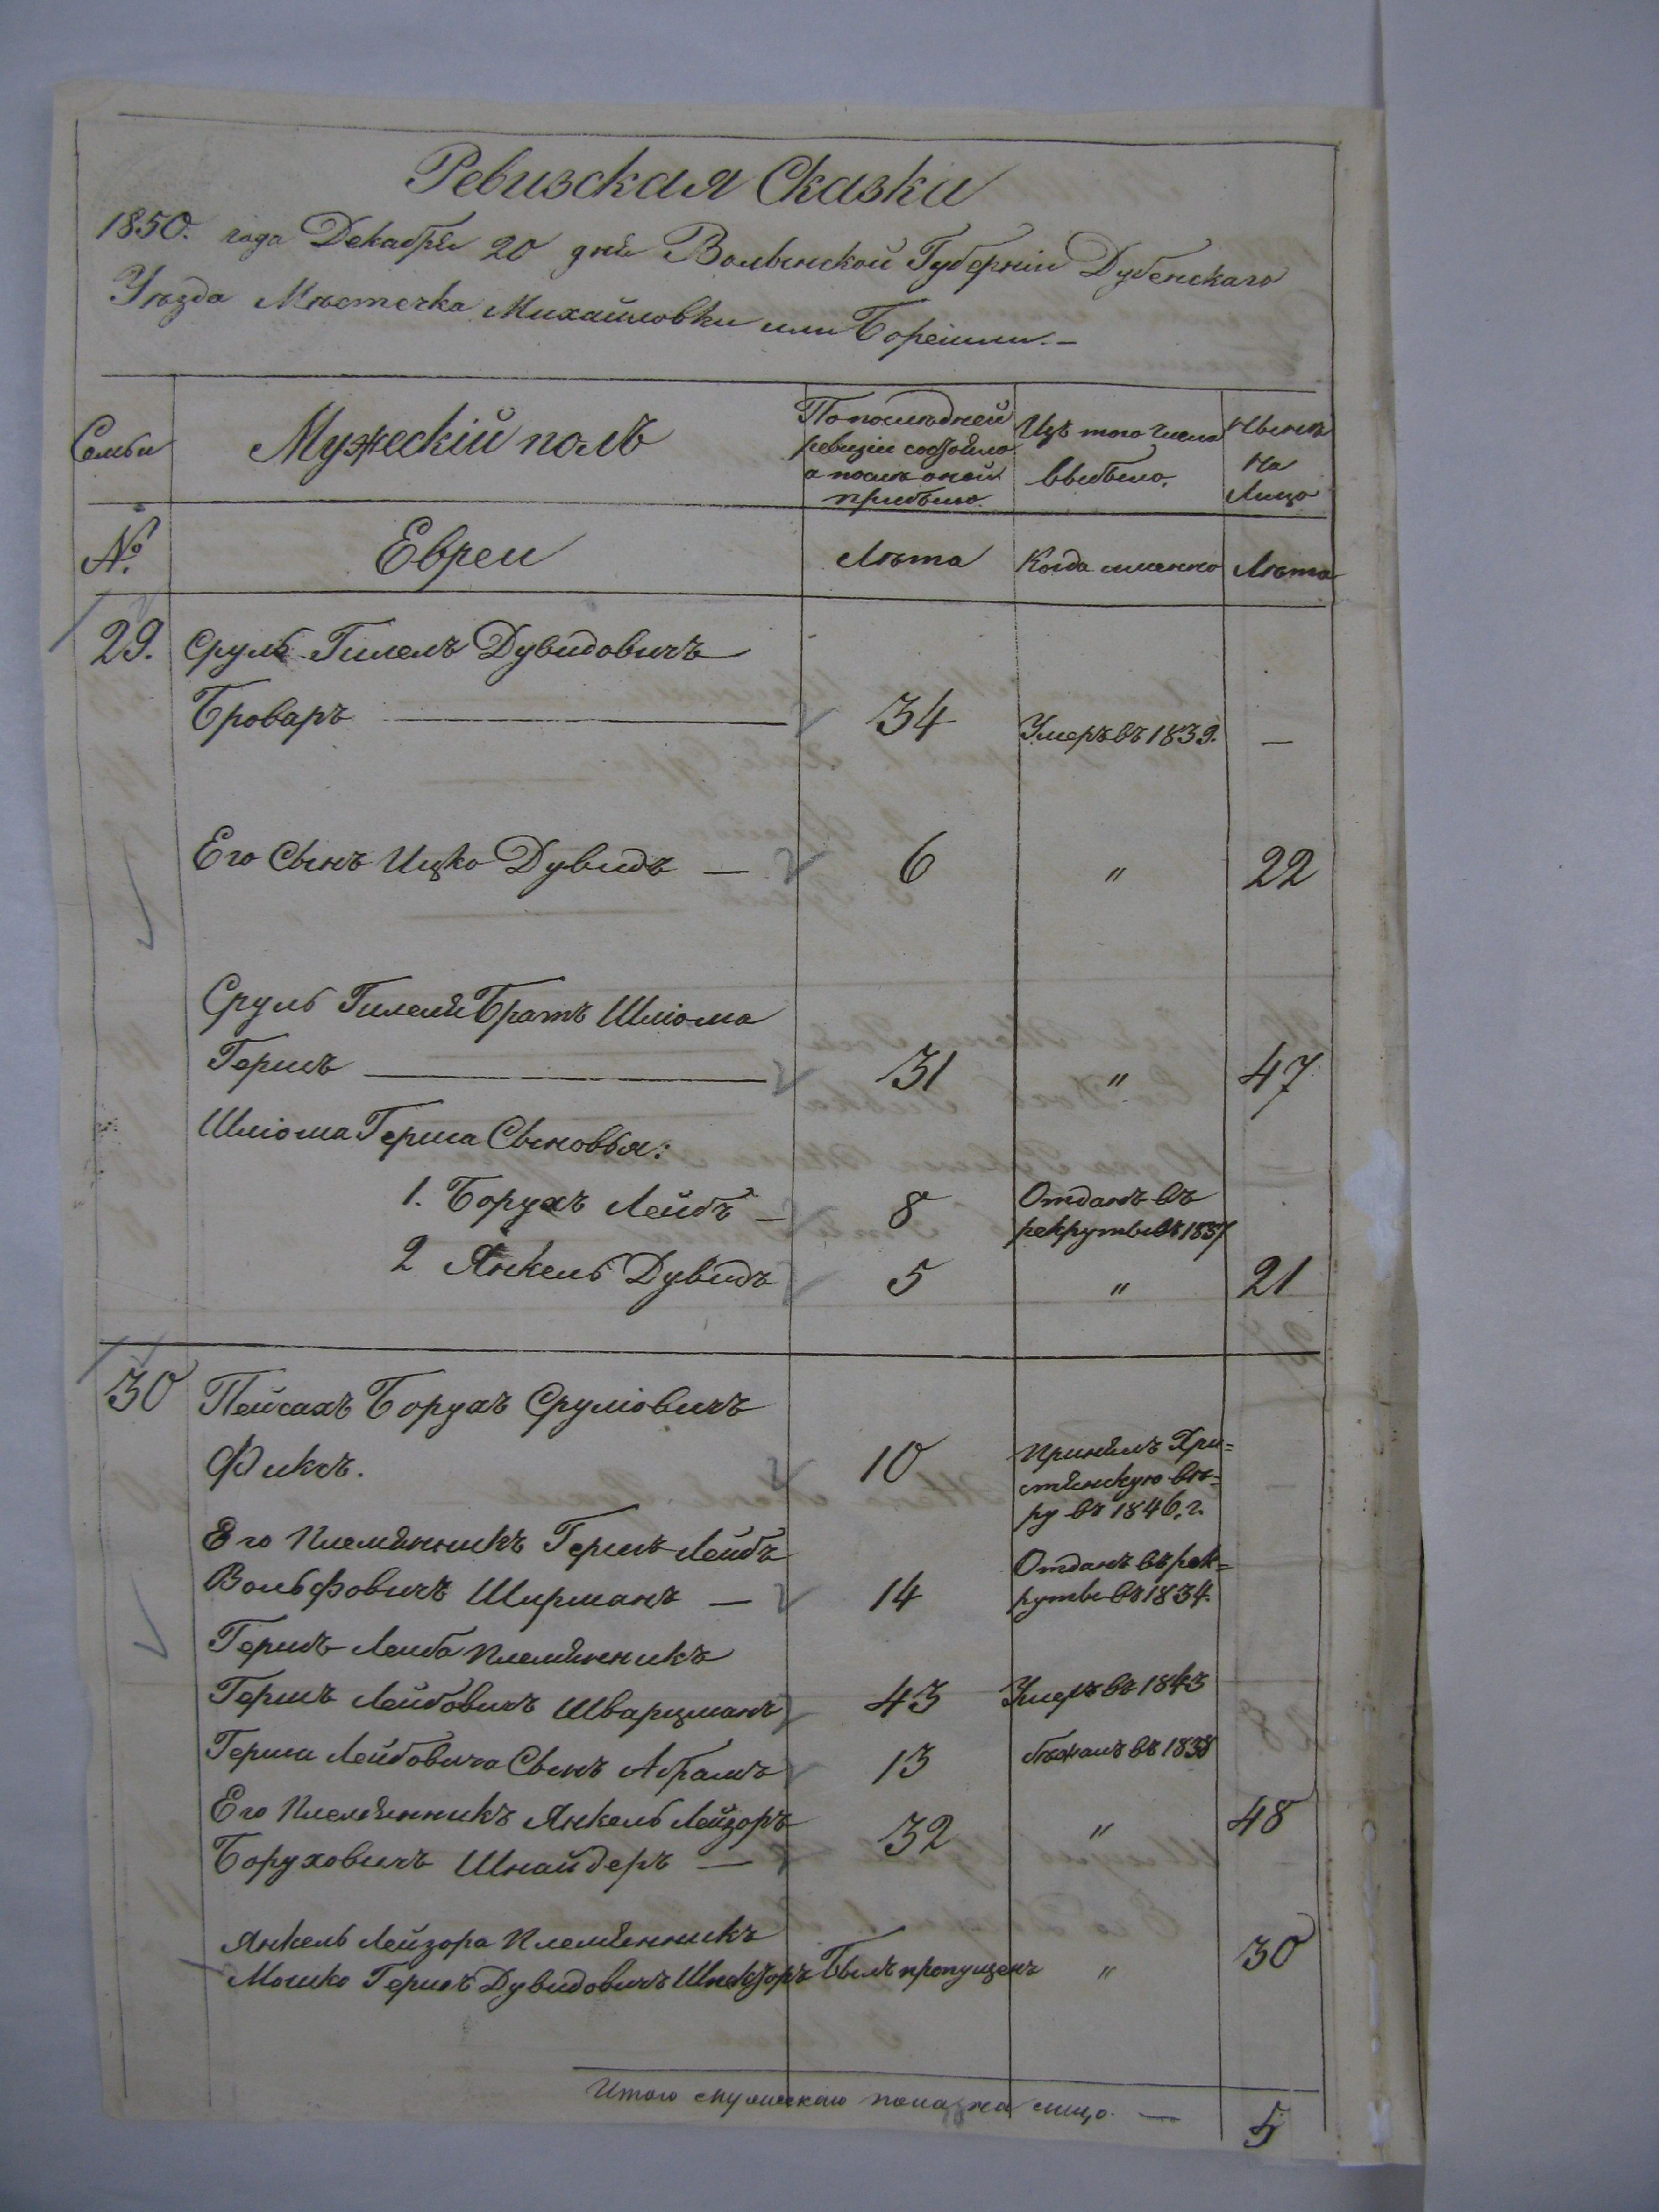 Ревизская Сказки
1850. года Декабря 20 дня Волынской Губерніи Дубенскаго
Уезда Мѣстечка Михайловки или Боремли. —
Семьи
Мужескій полъ
По послѣдней
ревизіи состояло
а послѣ оной
прибыло.
Изъ того числа
выбыло.
Нынѣ
на
Лицо
№.
Евреи
Лѣта
Когда именно
Лѣта
29. Сруль Гилель Дувидовичъ
Броваръ — 34 Умеръ въ 1839. —
Его Сынъ Ицко Дувидъ — 6 " 22
Сруль Гилеля Братъ Шліома
Гершъ — 31 " 47
Шліома Герша Сыновья:
1. Борухъ Лейбъ — 8 Отданъ въ
рекруты въ 1837
2 Янкель Дувидъ 5 " 21
30 Пейсахъ Борухъ Сруліовичъ
Фиксъ. 10 Принялъ Хри=
стіянскую вѣ=
ру въ 1846. г.
Его Племянникъ Гершъ Лейбъ
Вольфовичъ Ширманъ — 14 Отданъ въ рек=
руты въ 1834.
Гершъ Лейба Племянникъ
Гершъ Лейбовичъ Шварцманъ 43 Умеръ въ 1843
Герша Лейбовича Сынъ Абрамъ 13 бѣжалъ въ 1838
Его Племянникъ Янкель Лейзоръ
Боруховичъ Шнайдеръ — 32 " 48
Янкель Лейзора Племянникъ
Мошко Гершъ Дувидовичъ Былъ пропущенъ " 30
Итого мужескаго пола на лицо. — 5